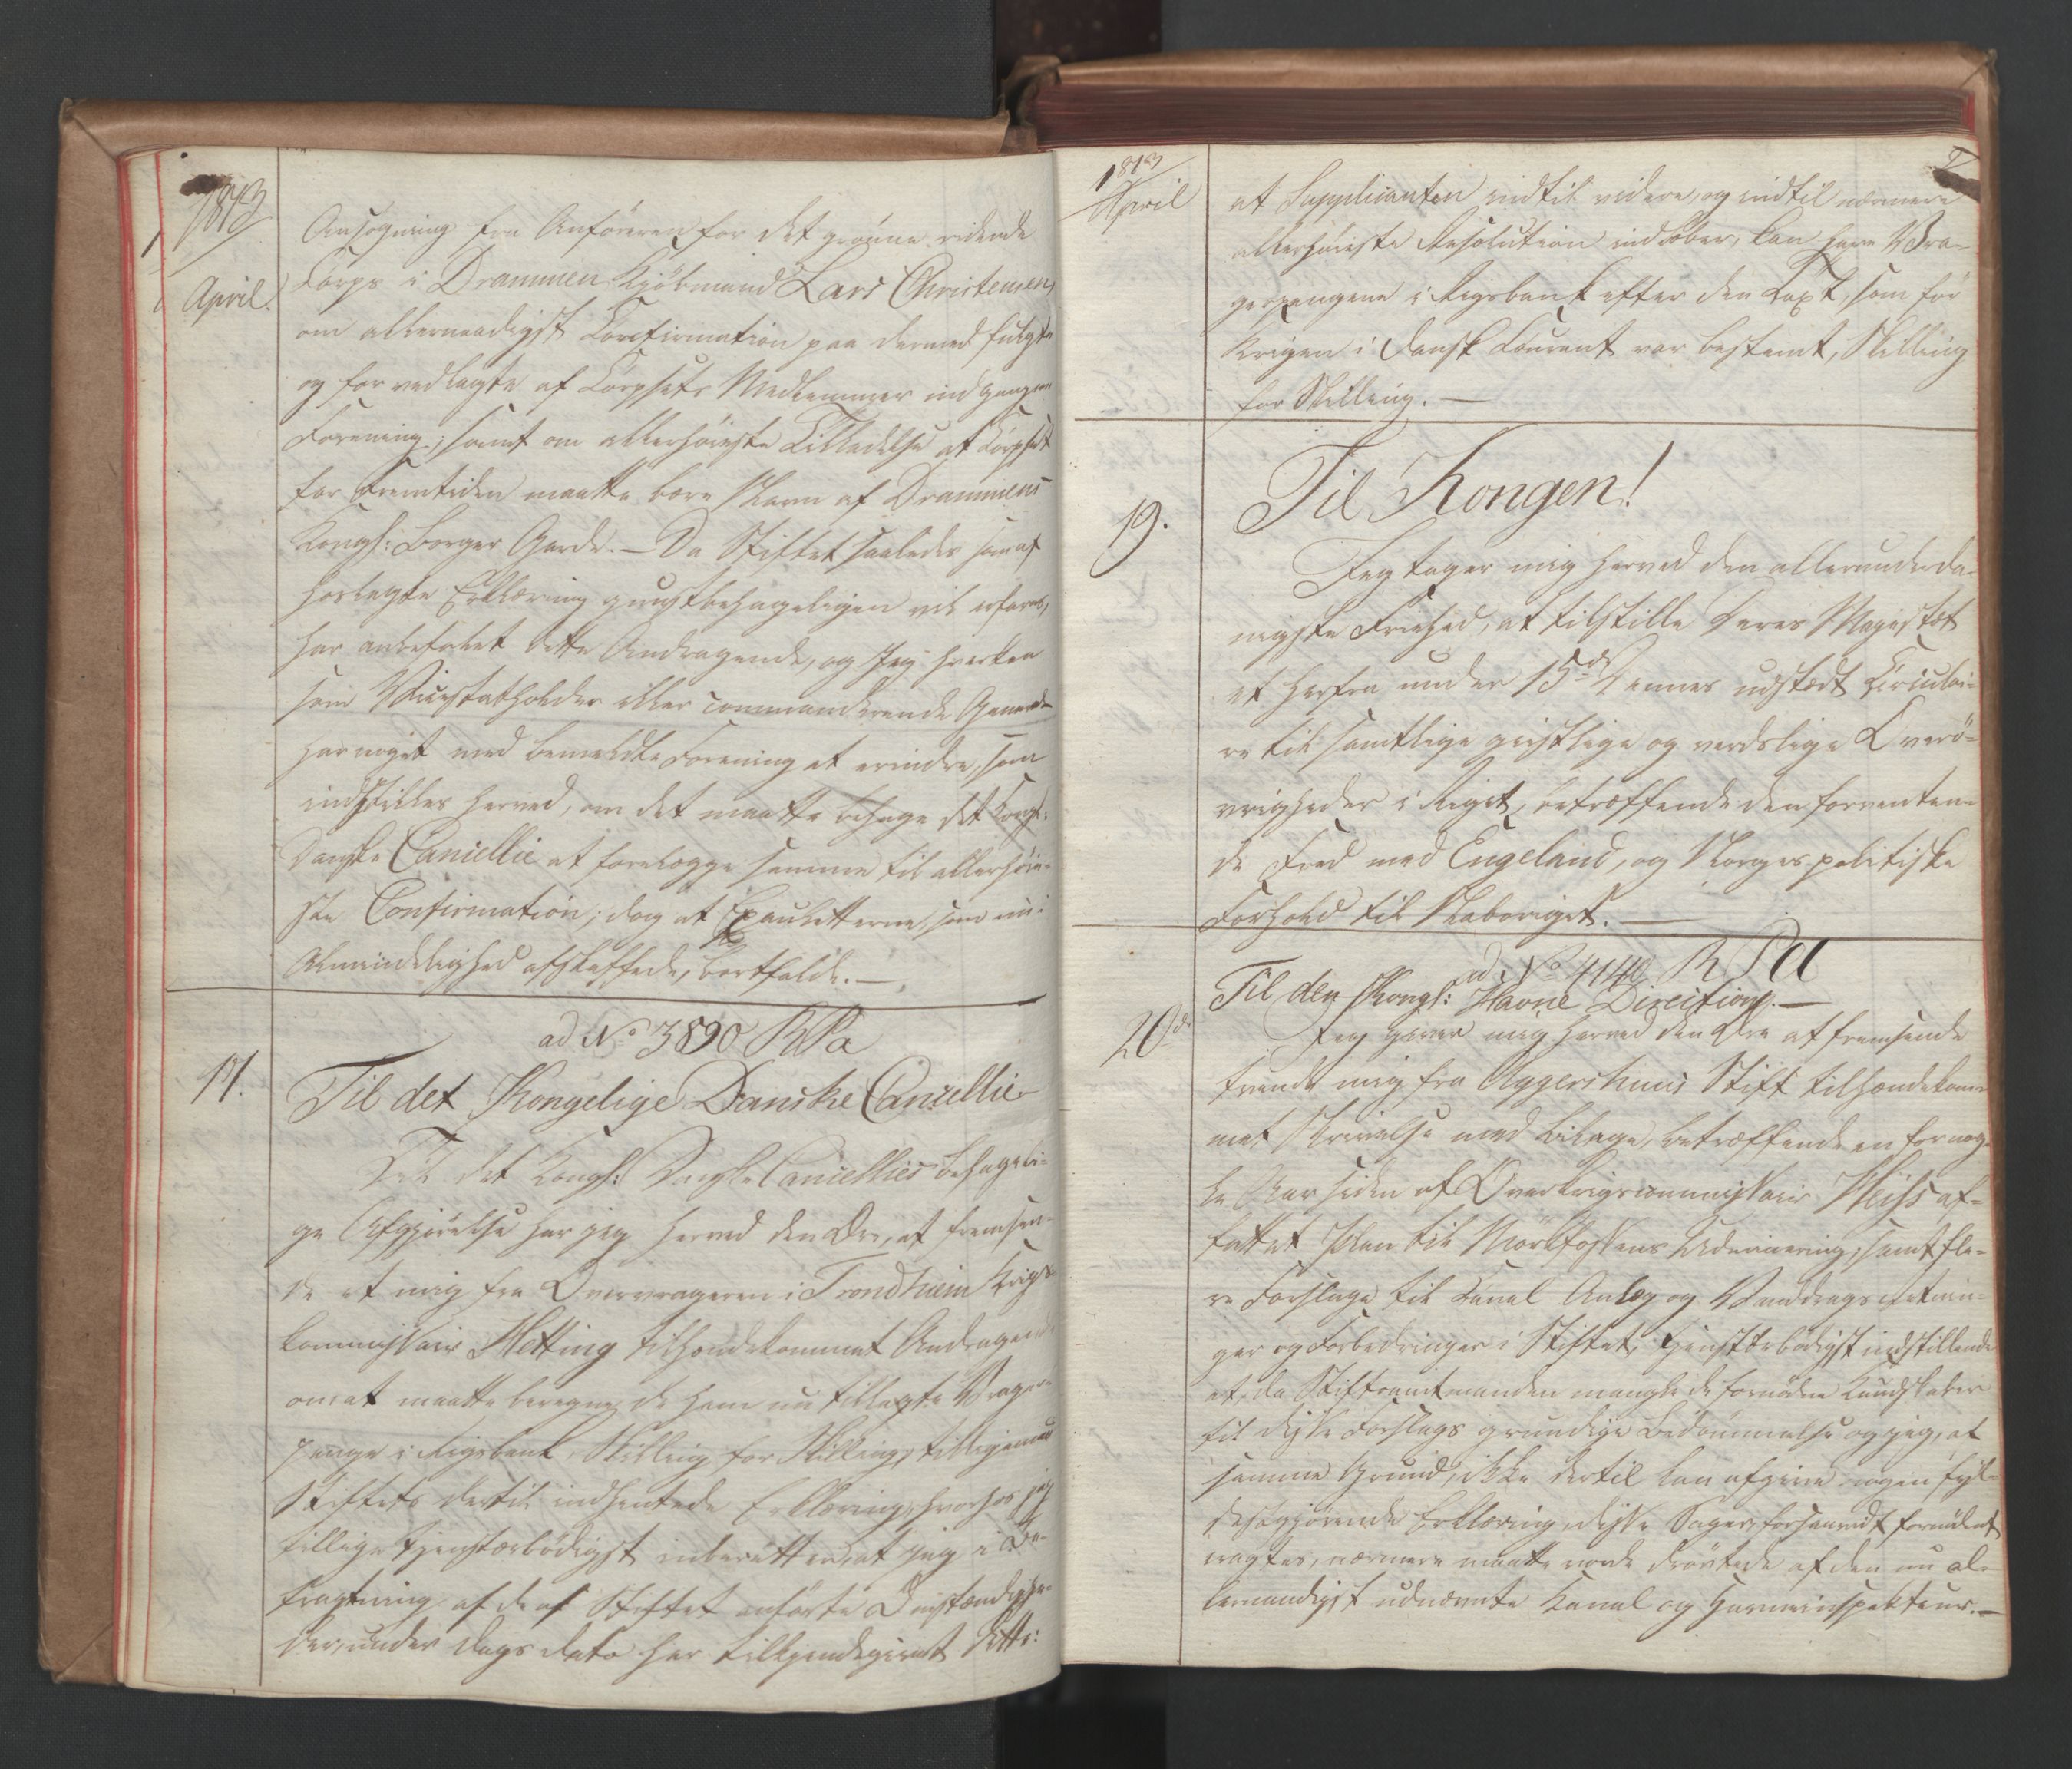 1813
April.
Ansøgning fra Anføreren for det grönne ridende
Corps i Drammen Kjöbmand Lars Christensen,
om allernaadigst Confirmation paa dermed fulgte
og her vedlagte af Corpsets Medlemmer indgangne
Forening; samt om allerhöieste Tilladelse at Corpset
for Fremtiden maatte bære Navn af Drammens
Kongl: Borger Garde. – Da Stiftet saaledes som af
hoslagte Erklæring gunstbehageligen vil erfares,
har anbefalet dette Andragende, og Jeg hverken
som Vicestatholder eller commanderende General
har noget med bemeldte Forening at erindre, saa
indstilles herved, om det maatte behage det Kongl:
Danske Cancellie at forelægge samme til allerhöie-
ste Confirmation; dog at Epauletterne, som nu i
Almindelighed afskaffede, bortfalde. –
ad No 3890 R P a
17.
Til det Kongelige Danske Cancellie
Til det Kongl: Danske Cancellies behageli-
ge Afgjörelse har jeg herved den Ære, at fremsen-
de et mig fra Overvrageren i Trondhiem Krigs-
kommissair Hetting tilhændekommet Andragende
om at maatte beregne de ham nu tillagte Vrager-
penge i Rigsbank, Skilling for Skilling, tilligemed
Stiftets dertil indhentede Erklæring, hvorhos jeg
tillige tjenstærbödigst indberetter, at jeg i Be-
tragtning af de af Stiftet anförte Omstændighe-
der, under Dags dato har tilkjendegivet dette:
1813
April
at Supplicanten indtil videre, og indtil nærmere
allerhöieste Resolution indlöber, kan hæve Vra-
gerpengene i Rigsbank efter den Taxt, som för
Krigen i Dansk Courant var bestemt, Skilling
for Skilling. –
19.
Til Kongen!
Jeg tager mig herved den allerunderda-
nigste Friehed, at tilstille Deres Majestæt
et herfra under 15de dennes udstedt Circulai-
re til samtlige geistlige og verdslige Överö-
vrigheder i Riget, betræffende den forventen-
de Fred med Engeland, og Norges politiske
Forhold til Naboriget. –
ad No 4140 R P a
20de
Til den Kongl: Havne Direction. –
Jeg giver mig herved den Ære at fremsende
trende mig fra Aggershuus Stift tilhændekom-
met Skrivelse med Bilage, betræffende en for nog-
le Aar siden af Overkrigscommissair af-
fattet Plan til Mörkfossens Udminering; samt fle-
re Forslage til Canal Anlæg og Vanddrags
ger og Forbedringer i Stiftet, tjenstærbödigst indstillende
at, da Stiftamtmanden mangle de fornödne Kundskaber
til disse Forslags grundige Bedömmelse og jeg, af
samme Grund, ikke dertil kan afgive nogen fyl-
destgjörende Erklæring, disse Sager, forsaavidt fornödent
eragtes, nærmere maatte vorde dröftede af den nu al-
lernaadigst udnævnte Kanal og Havneinspekteur. –